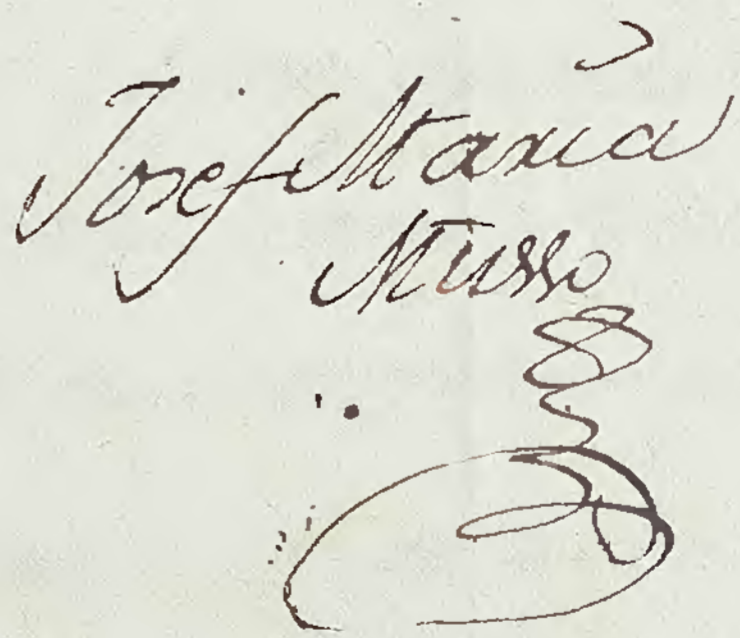 Josef Maria
Musso